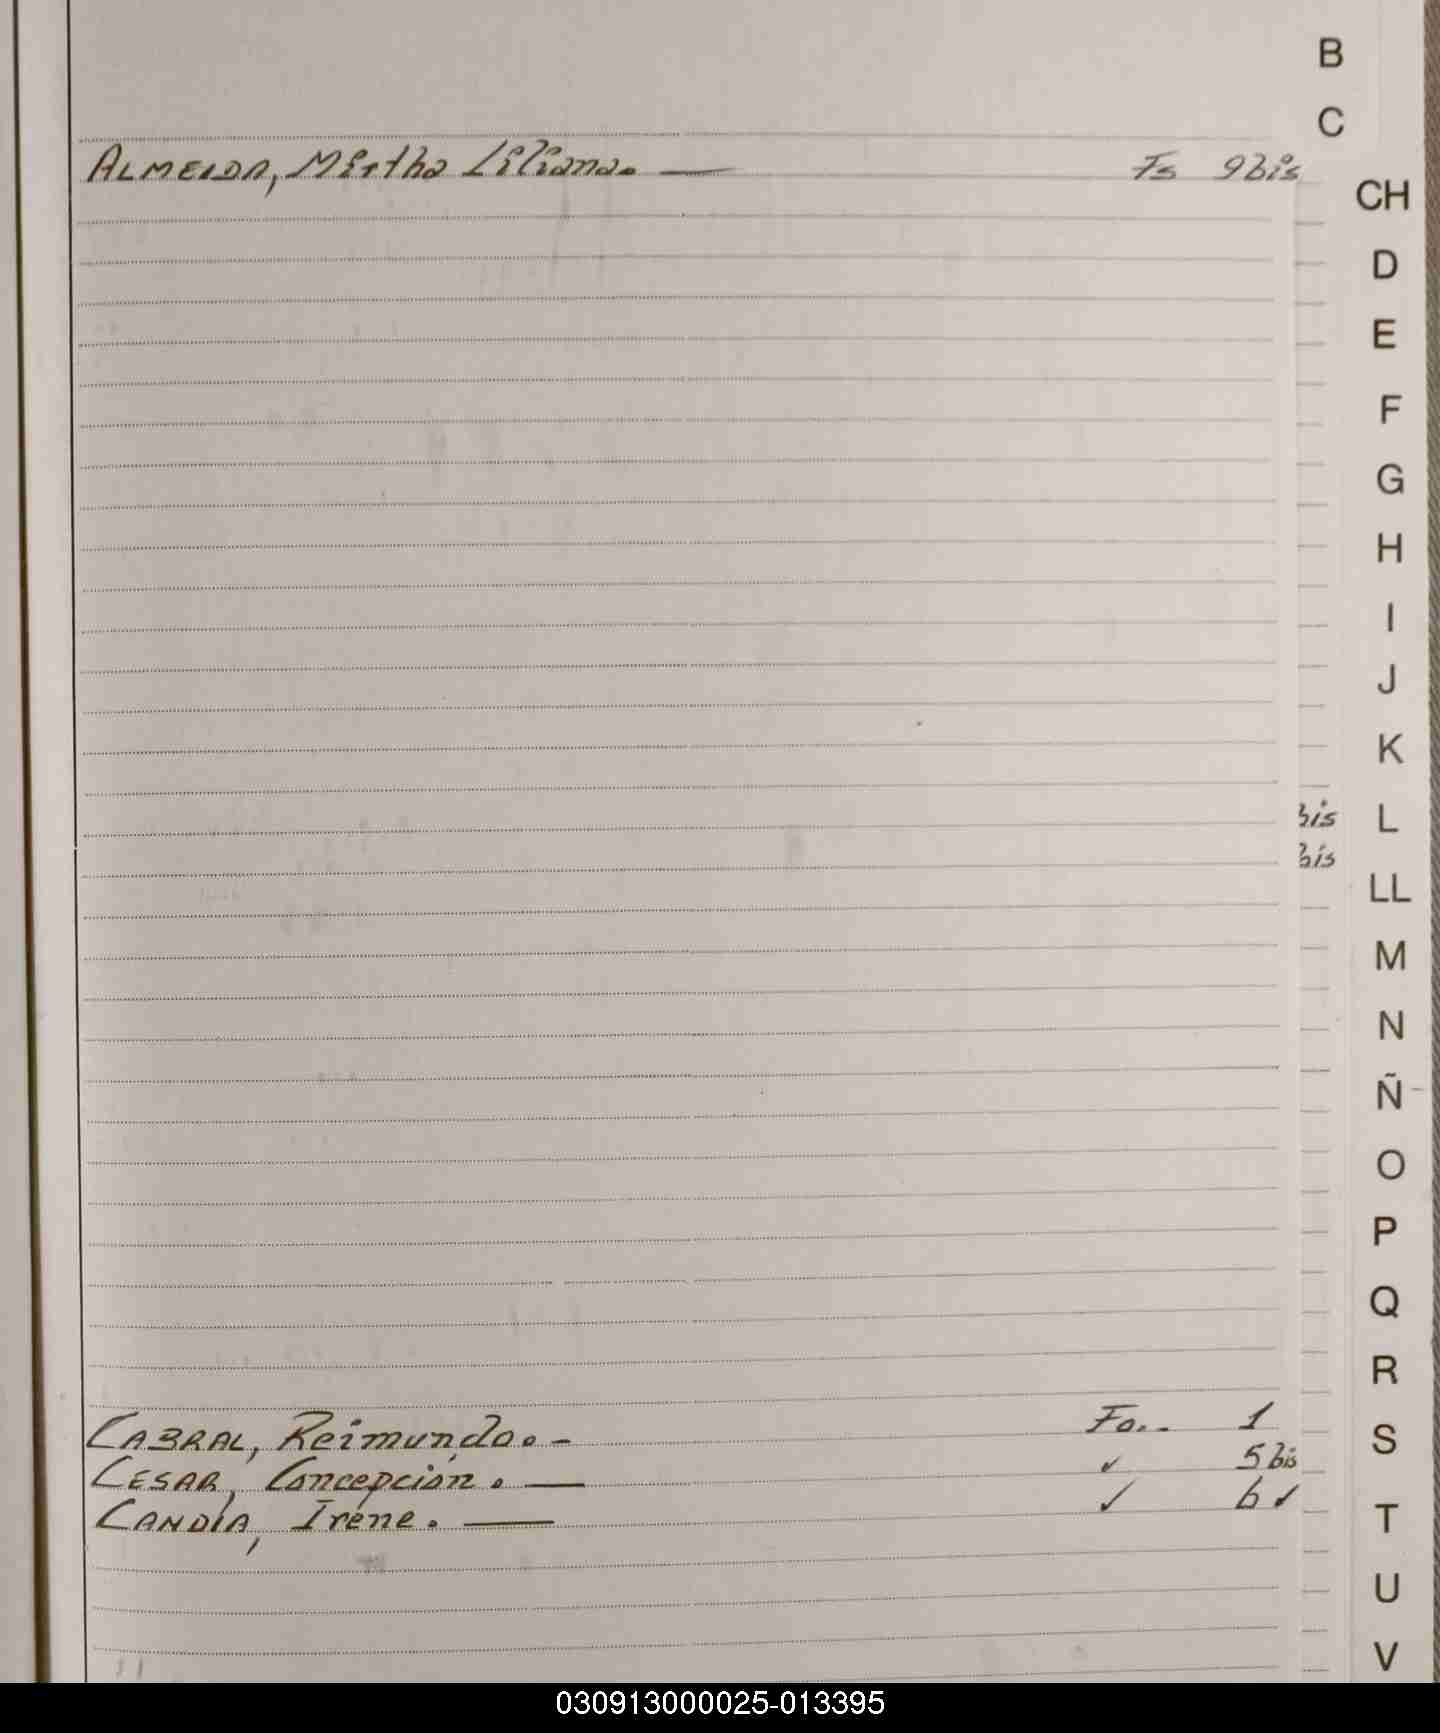 B
C
ALMEIDA, Mirtha Liliana. — Fs 9bis
CH
D
E
F
G
H
I
J
K
bis L
bis
LL
M
N
Ñ
O
P
Q
R
CABRAL, Reimundo. - Fo.. 1
S
CESAR, Concepción. — ✓ 5 bis
CANDIA, Irene. — ✓ 6 ✓
T
U
V
030913000025-013395